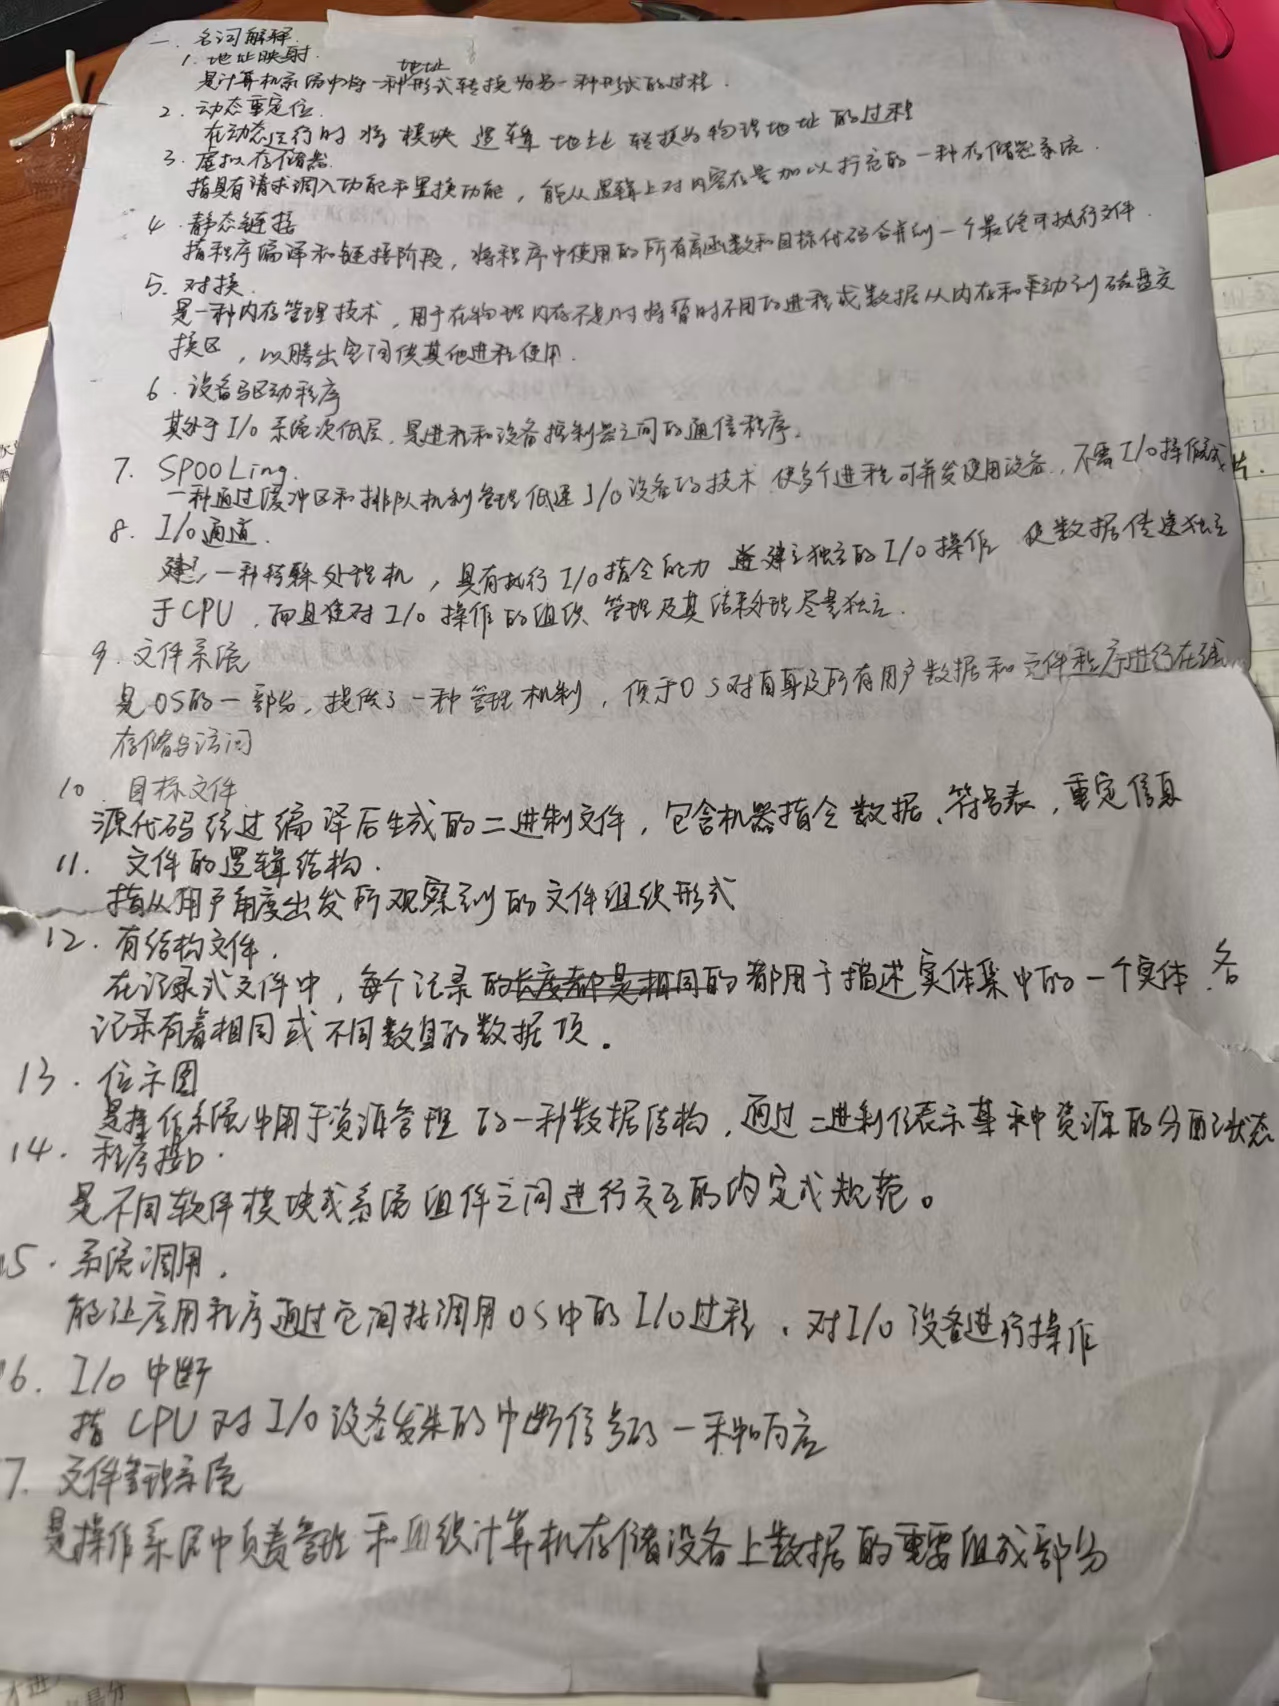 一. 名词解释
1. 地址映射.
是计算机系统中将一种地址形式转换为另一种形式的过程.
2. 动态重定位
在动态运行时 将 模块 逻辑 地址 转换为物理地址 的过程
3. 虚拟存储器.
指具有请求调入功能和置换功能，能从逻辑上对内容存量加以扩充的一种存储器系统.
4. 静态链接
指程序编译和链接阶段，将程序中使用的所有库函数和目标代码合并到一个最终可执行文件.
5. 对换.
是一种内存管理技术，用于在物理内存不足时将暂时不用的进程或数据从内存移动到磁盘交
换区，以腾出空间供其他进程使用.
6. 设备驱动程序
其处于I/O系统次低层.是进程和设备控制器之间的通信程序.
7. SPOOLing.
一种通过缓冲区和排队机制管理低速I/O设备的技术.使多个进程可并发使用设备.,不需I/O操作
8. I/O通道.
一种特殊处理机，具有执行I/O指令能力 建立独立的I/O操作 使数据传送独立
于CPU，而且使对I/O操作的组织 管理及其结果处理尽量独立.
9. 文件系统
是OS的一部分，提供了一种管理机制，便于OS对自身及所有用户数据和文件程序进行在线
存储与访问
10. 目标文件
源代码经过编译后生成的二进制文件，包含机器指令 数据、符号表，重定信息
11. 文件的逻辑结构.
指从用户角度出发所观察到的文件组织形式
12. 有结构文件.
在记录式文件中，每个记录的长度都是相同的都用于描述实体集中的一个实体.各
记录有着相同或不同数目的数据项.
13. 位示图
是操作系统中用于资源管理 的一种数据结构，通过二进制位表示某种资源的分配状态
14. 程序接口.
是不同软件模块或系统组件之间进行交互的约定或规范。
15. 系统调用.
能让应用程序通过它间接调用OS中的I/O过程、对I/O设备进行操作
16. I/O中断
指CPU对I/O设备发来的中断信号的一种响应
7. 文件管理系统
是操作系统中负责管理和组织计算机存储设备上数据的重要组成部分